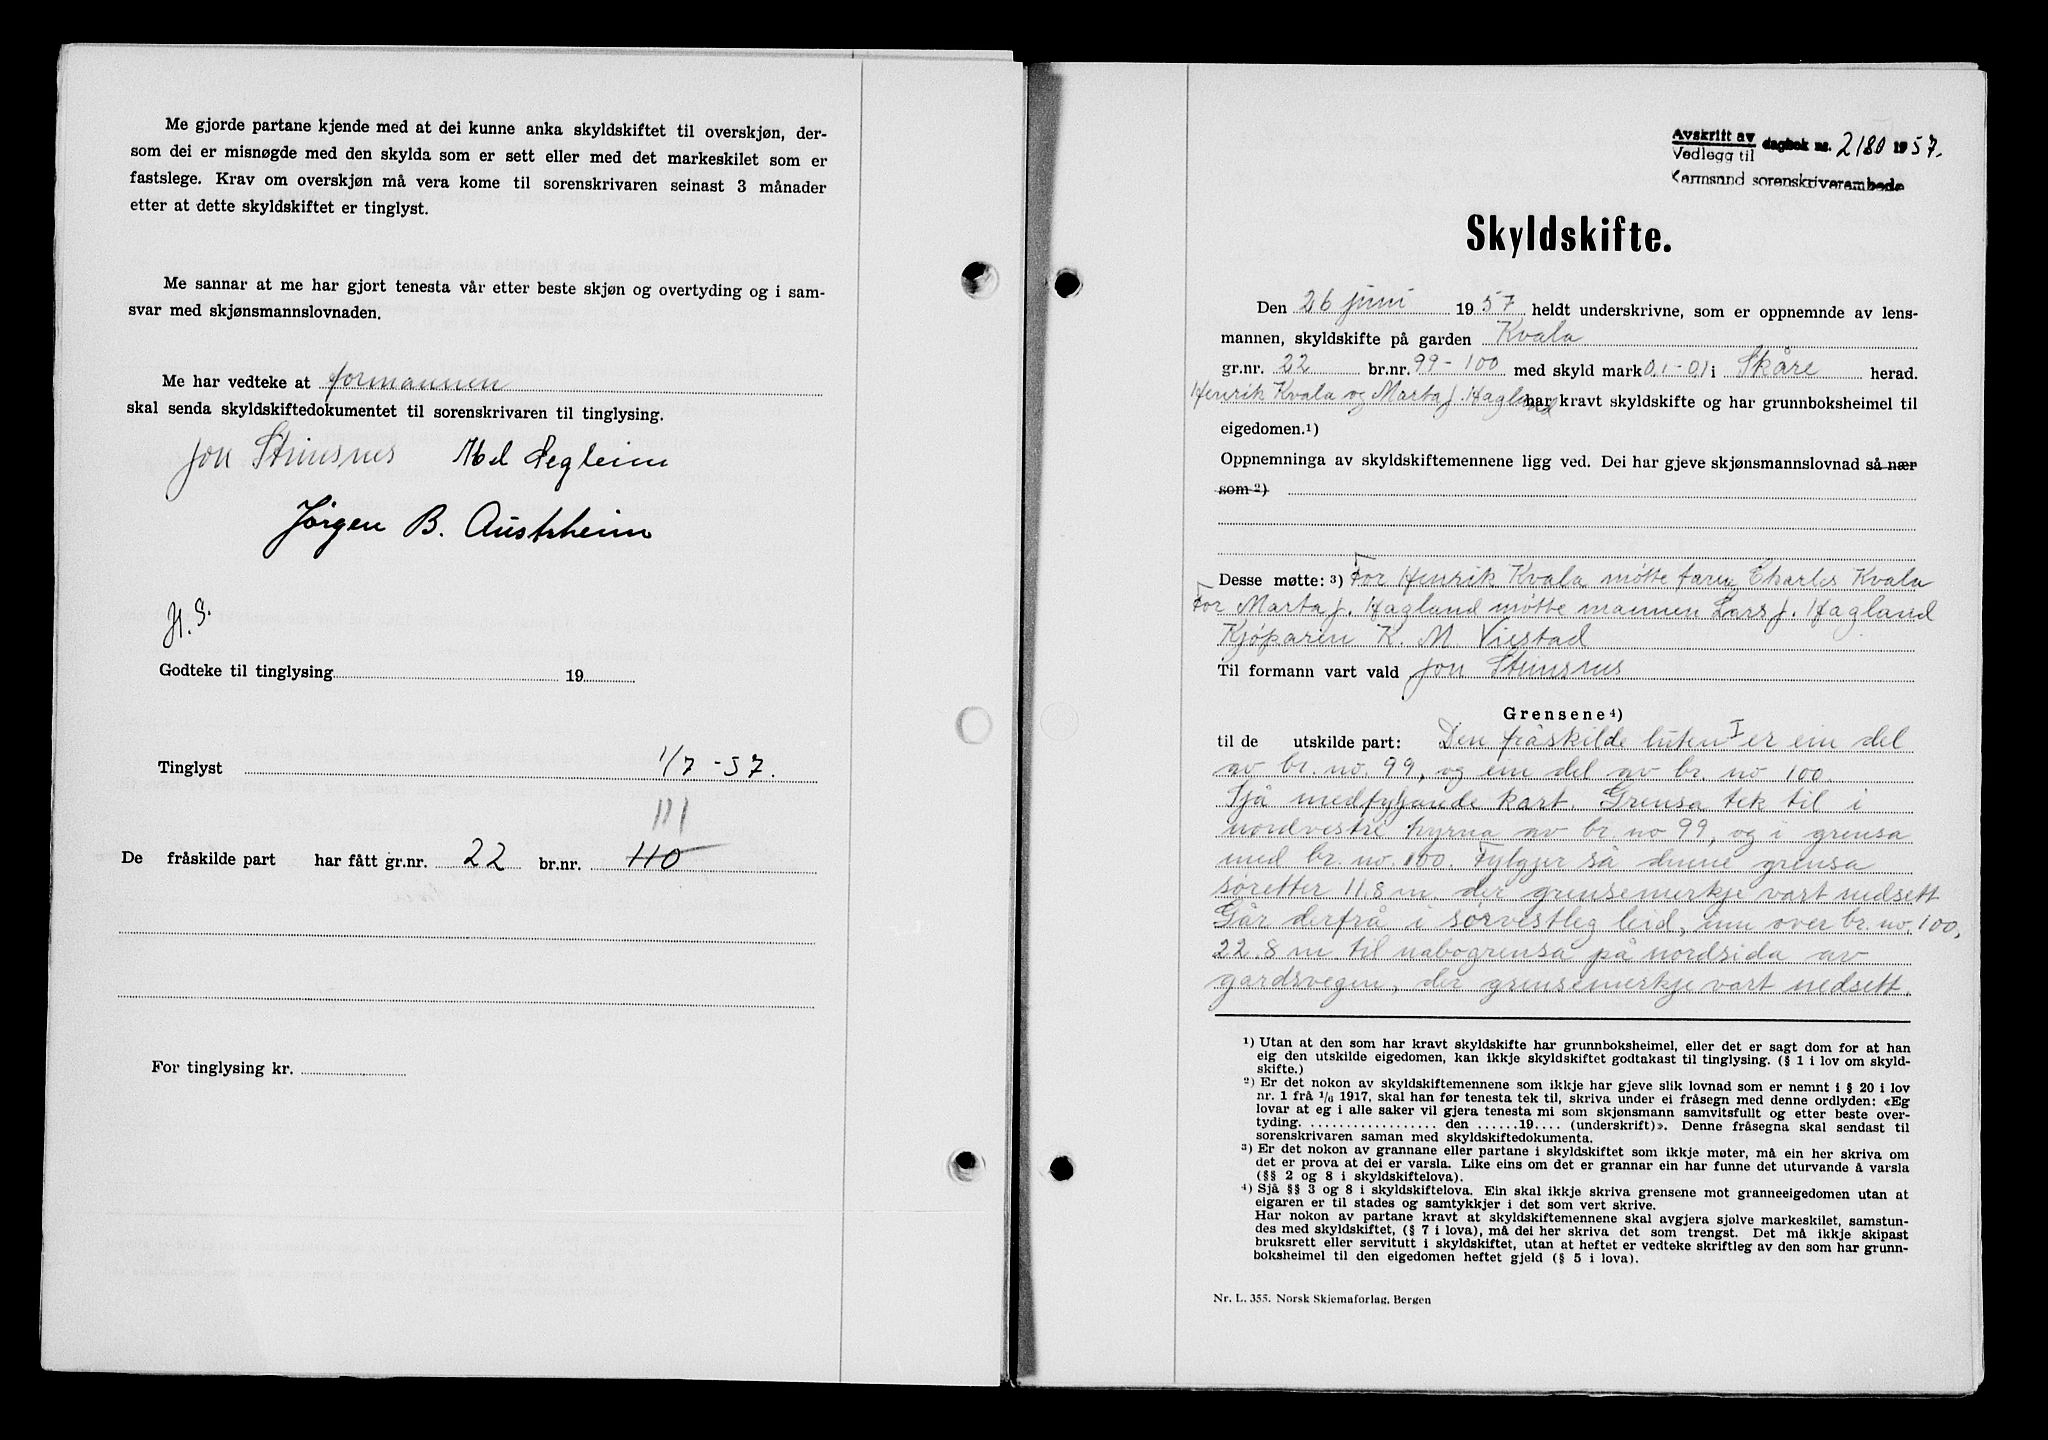 Me gjorde partane kjende med at dei kunne anka skyldskiftet til overskjøn, der-
som dei er misnøgde med den skylda som er sett eller med det markeskilet som er
fastslege. Krav om overskjøn må vera kome til sorenskrivaren seinast 3 månader
etter at dette skyldskiftet er tinglyst.
Me sannar at me har gjort tenesta vår etter beste skjøn og overtyding og i sam-
svar med skjønsmannslovnaden.
Me har vedteke at formannen
skal senda skyldskiftedokumentet til sorenskrivaren til tinglysing.
Jon Steinsnes Abel Segleim
Jørgen B. Austrheim
H. S.
Godteke til tinglysing 19
Tinglyst 1/7-57.
111
De fråskilde part har fått gr.nr. 22 br.nr. 110
For tinglysing kr.
Avskrift av dagbok nr. 2180 1957.
Vedlegg til
Karmsund sorenskriverambede
Skyldskifte.
Den 26 juni 1957 heldt underskrivne, som er oppnemnde av lens-
mannen, skyldskifte på garden Kvala
gr.nr. 22 br.nr. 99-100 med skyld mark 0,1-0,1 i Skåre herad.
Henrik Kvala og Marta J. Hagland har kravt skyldskifte og har grunnboksheimel til
eigedomen.¹)
Oppnemninga av skyldskiftemennene ligg ved. Dei har gjeve skjønsmannslovnad så nær
som ²)
Desse møtte: ³) For Henrik Kvala møtte faren Charles Kvala
For Marta J. Hagland møtte mannen Lars J. Hagland
Kjøparen K. M. Viestad
Til formann vart vald Jon Steinsnes
Grensene ⁴)
til de utskilde part: Den fråskilde luten I er ein del
av br. no. 99, og ein del av br. no 100.
Sjå medfylgjande kart. Grensa tek til i
nordvestre hyrna av br. no 99, og i grensa
med br. no. 100. Fylgjer så denne grensa
søretter 11.8 m. der grensemerkje vart nedsett
Går derfrå i sørvestleg leid, inn over br. no. 100,
22.8 m. til nabogrensa på nordsida av
gardsvegen, der grensemerkje vart nedsett.
¹) Utan at den som har kravt skyldskifte har grunnboksheimel, eller det er sagt dom for at han
eig den utskilde eigedomen, kan ikkje skyldskiftet godtakast til tinglysing. (§ 1 i lov om skyld-
skifte.)
²) Er det nokon av skyldskiftemennene som ikkje har gjeve slik lovnad som er nemnt i § 20 i lov
nr. 1 frå 1/6 1917, skal han før tenesta tek til, skriva under ei fråsegn med denne ordlyden: «Eg
lovar at eg i alle saker vil gjera tenesta mi som skjønsmann samvitsfullt og etter beste over-
tyding. .................. den ......19.... (underskrift)». Denne fråsegna skal sendast til
sorenskrivaren saman med skyldskiftedokumenta.
³) Er det nokon av grannane eller partane i skyldskiftet som ikkje møter, må ein her skriva om
det er prova at dei er varsla. Like eins om det er grannar ein har funne det uturvande å varsla
(§§ 2 og 8 i skyldskiftelova).
⁴) Sjå §§ 3 og 8 i skyldskiftelova. Ein skal ikkje skriva grensene mot granneeigedomen utan at
eigaren er til stades og samtykkjer i det som vert skrive.
Har nokon av partane kravt at skyldskiftemennene skal avgjera sjølve markeskilet, samstun-
des med skyldskiftet, (§ 7 i lova), må dei her skriva det som trengst. Det må ikkje skipast
bruksrett eller servitutt i skyldskiftet, utan at heftet er vedteke skriftleg av den som har grunn-
boksheimel til den eigedomen heftet gjeld (§ 5 i lova).
Nr. L. 355. Norsk Skjemaforlag, Bergen